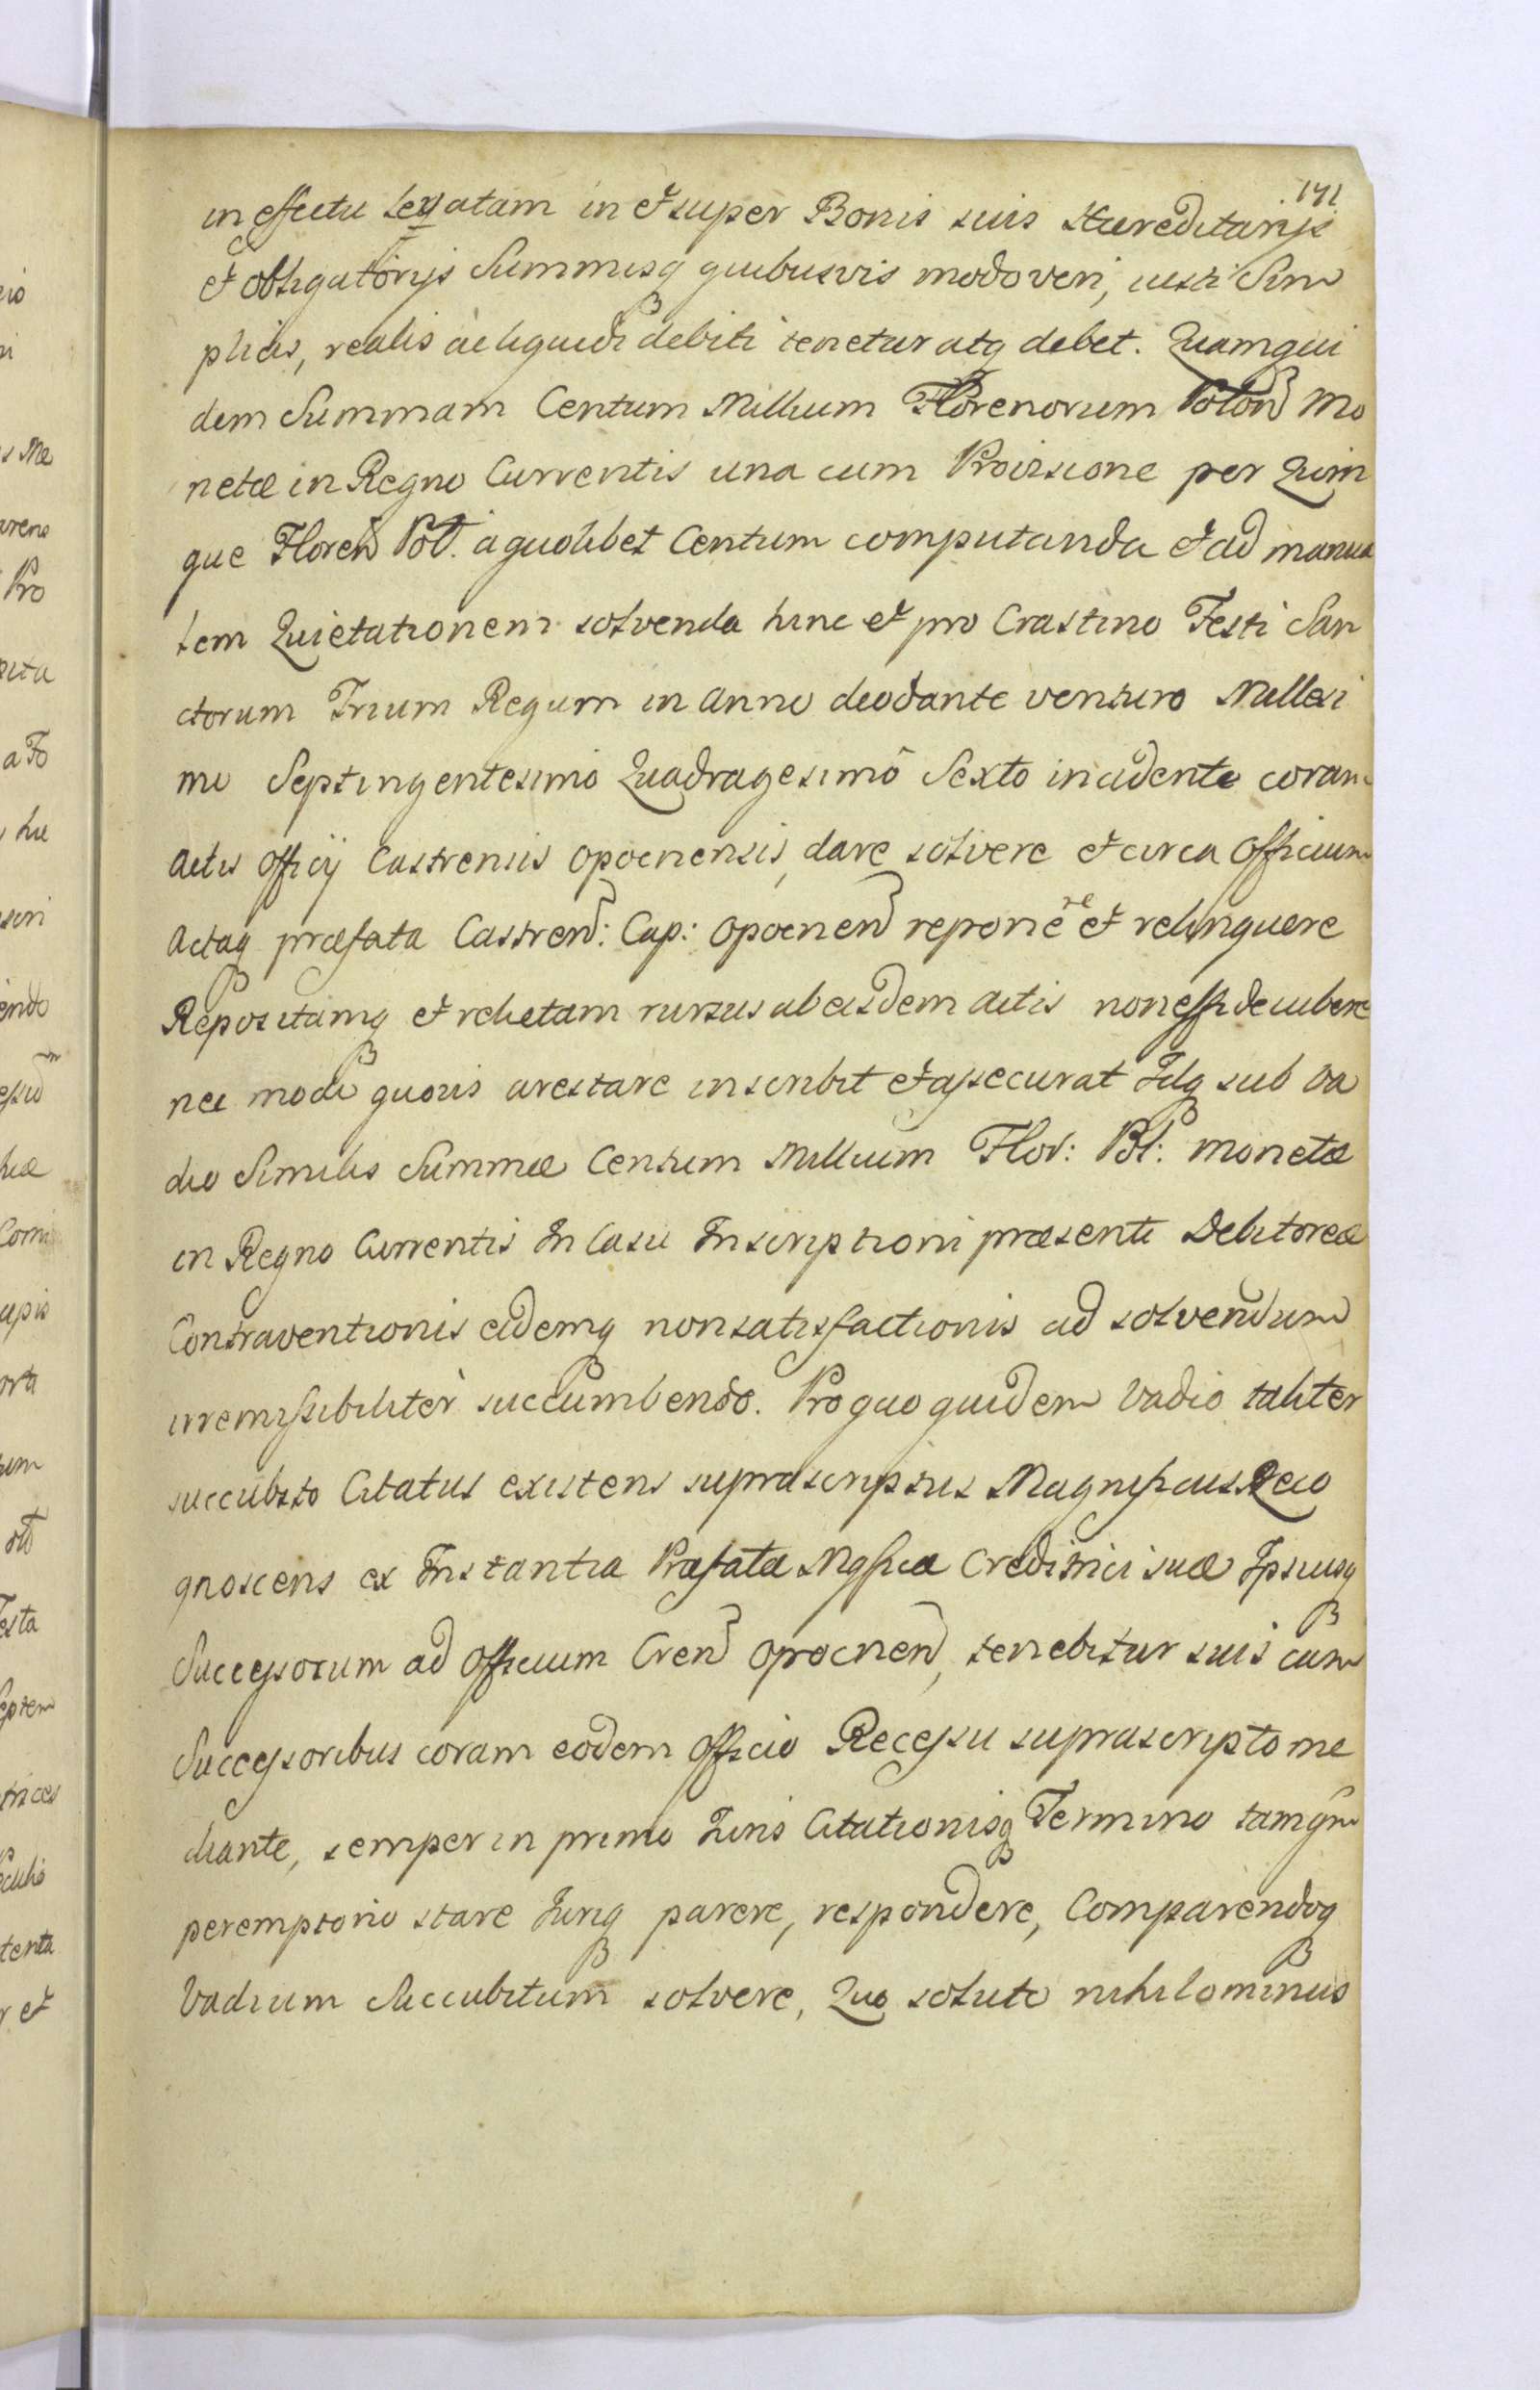 171
in effectu levatam in et super Bonis suis Haereditarijs
et obligatorijs Summisq quibusvis modo veri, iusti Sim
plicis, realis ac liquidi debiti tenetur atq debet. Quamqui
dem Summam Centum Millium Florenorum Polon Mo
netæ in Regno Currentis una cum Provisione per Quin
que Floren Pol. a quolibet Centum computanda et ad manua
lem Quietationem solvenda hinc et pro Crastino Festi San
ctorum Trium Regum in Anno deodante venturo Millesi
mo Septingentesimo Quadragesimô Sexto incidente coram
Actis Officij Castrensis Opocnensis, dare solvere et circa Officium
Actaq præfata Castren: Cap: Opocnen reponere et relinquere
Repositamq et relictam rursus ab eisdem Actis non
nec modi quovis arestare inscribit et assecurat Idq sub Va
dio Similis Summæ Centum Millium Flor: Pol: Monetæ
in Regno Currentis In Casu Inscriptioni præsenti Debitoreæ
Contraventionis eidemq non satisfactionis ad solvendum
irremissibilitèr succumbendo. Pro quo quidem Vadio taliter
succubito Citatus existens suprascriptus Magnificus Reco
gnoscens ex Instantia Præfatæ Mgficæ Creditrici suæ Ipsiusq
Successorum ad Officium Cren Opocnen, tenebitur suis cum
Successoribus coram eodem Officio Recessu suprascripto me
diante, semper in primo Juris Citationisq Termino tamqm
peremptorio stare Juriq parere, respondere, Comparendoq
Vadium Succubitum solvere, Quo soluto nihilominus